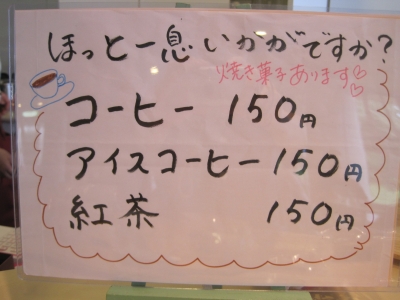 ほっと一息いかがですか?
焼き菓子あります♡♡
コーヒー 150円
アイスコーヒー 150円
紅茶 150円